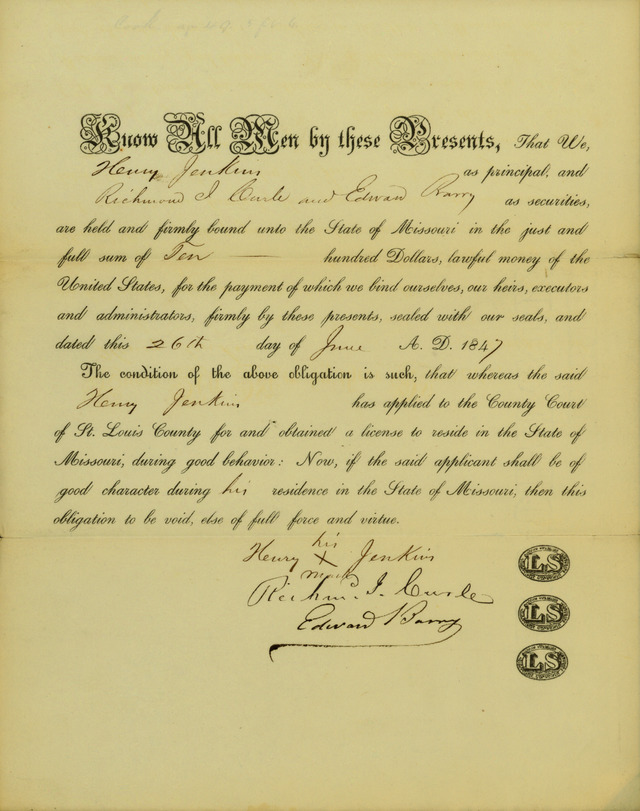 Know All Men by these Presents, That We,
Henry Jenkins as principal, and
Richmond J Curle and Edward Barry as securities,
are held and firmly bound unto the State of Missouri in the just and
full sum of Ten hundred Dollars, lawful money of the
United States, for the payment of which we bind ourselves, our heirs, executors
and administrators, firmly by these presents, sealed with our seals, and
dated this 26th day of June A. D. 1847
The condition of the above obligation is such, that whereas the said
Henry Jenkins has applied to the County Court
of St. Louis County for and obtained a license to reside in the State of
Missouri, during good behavior: Now, if the said applicant shall be of
good character during his residence in the State of Missouri, then this
obligation to be void, else of full force and virtue.
his
Henry X Jenkins
mark
Richmd. J. Curle
Edward Barry
LS
LS
LS